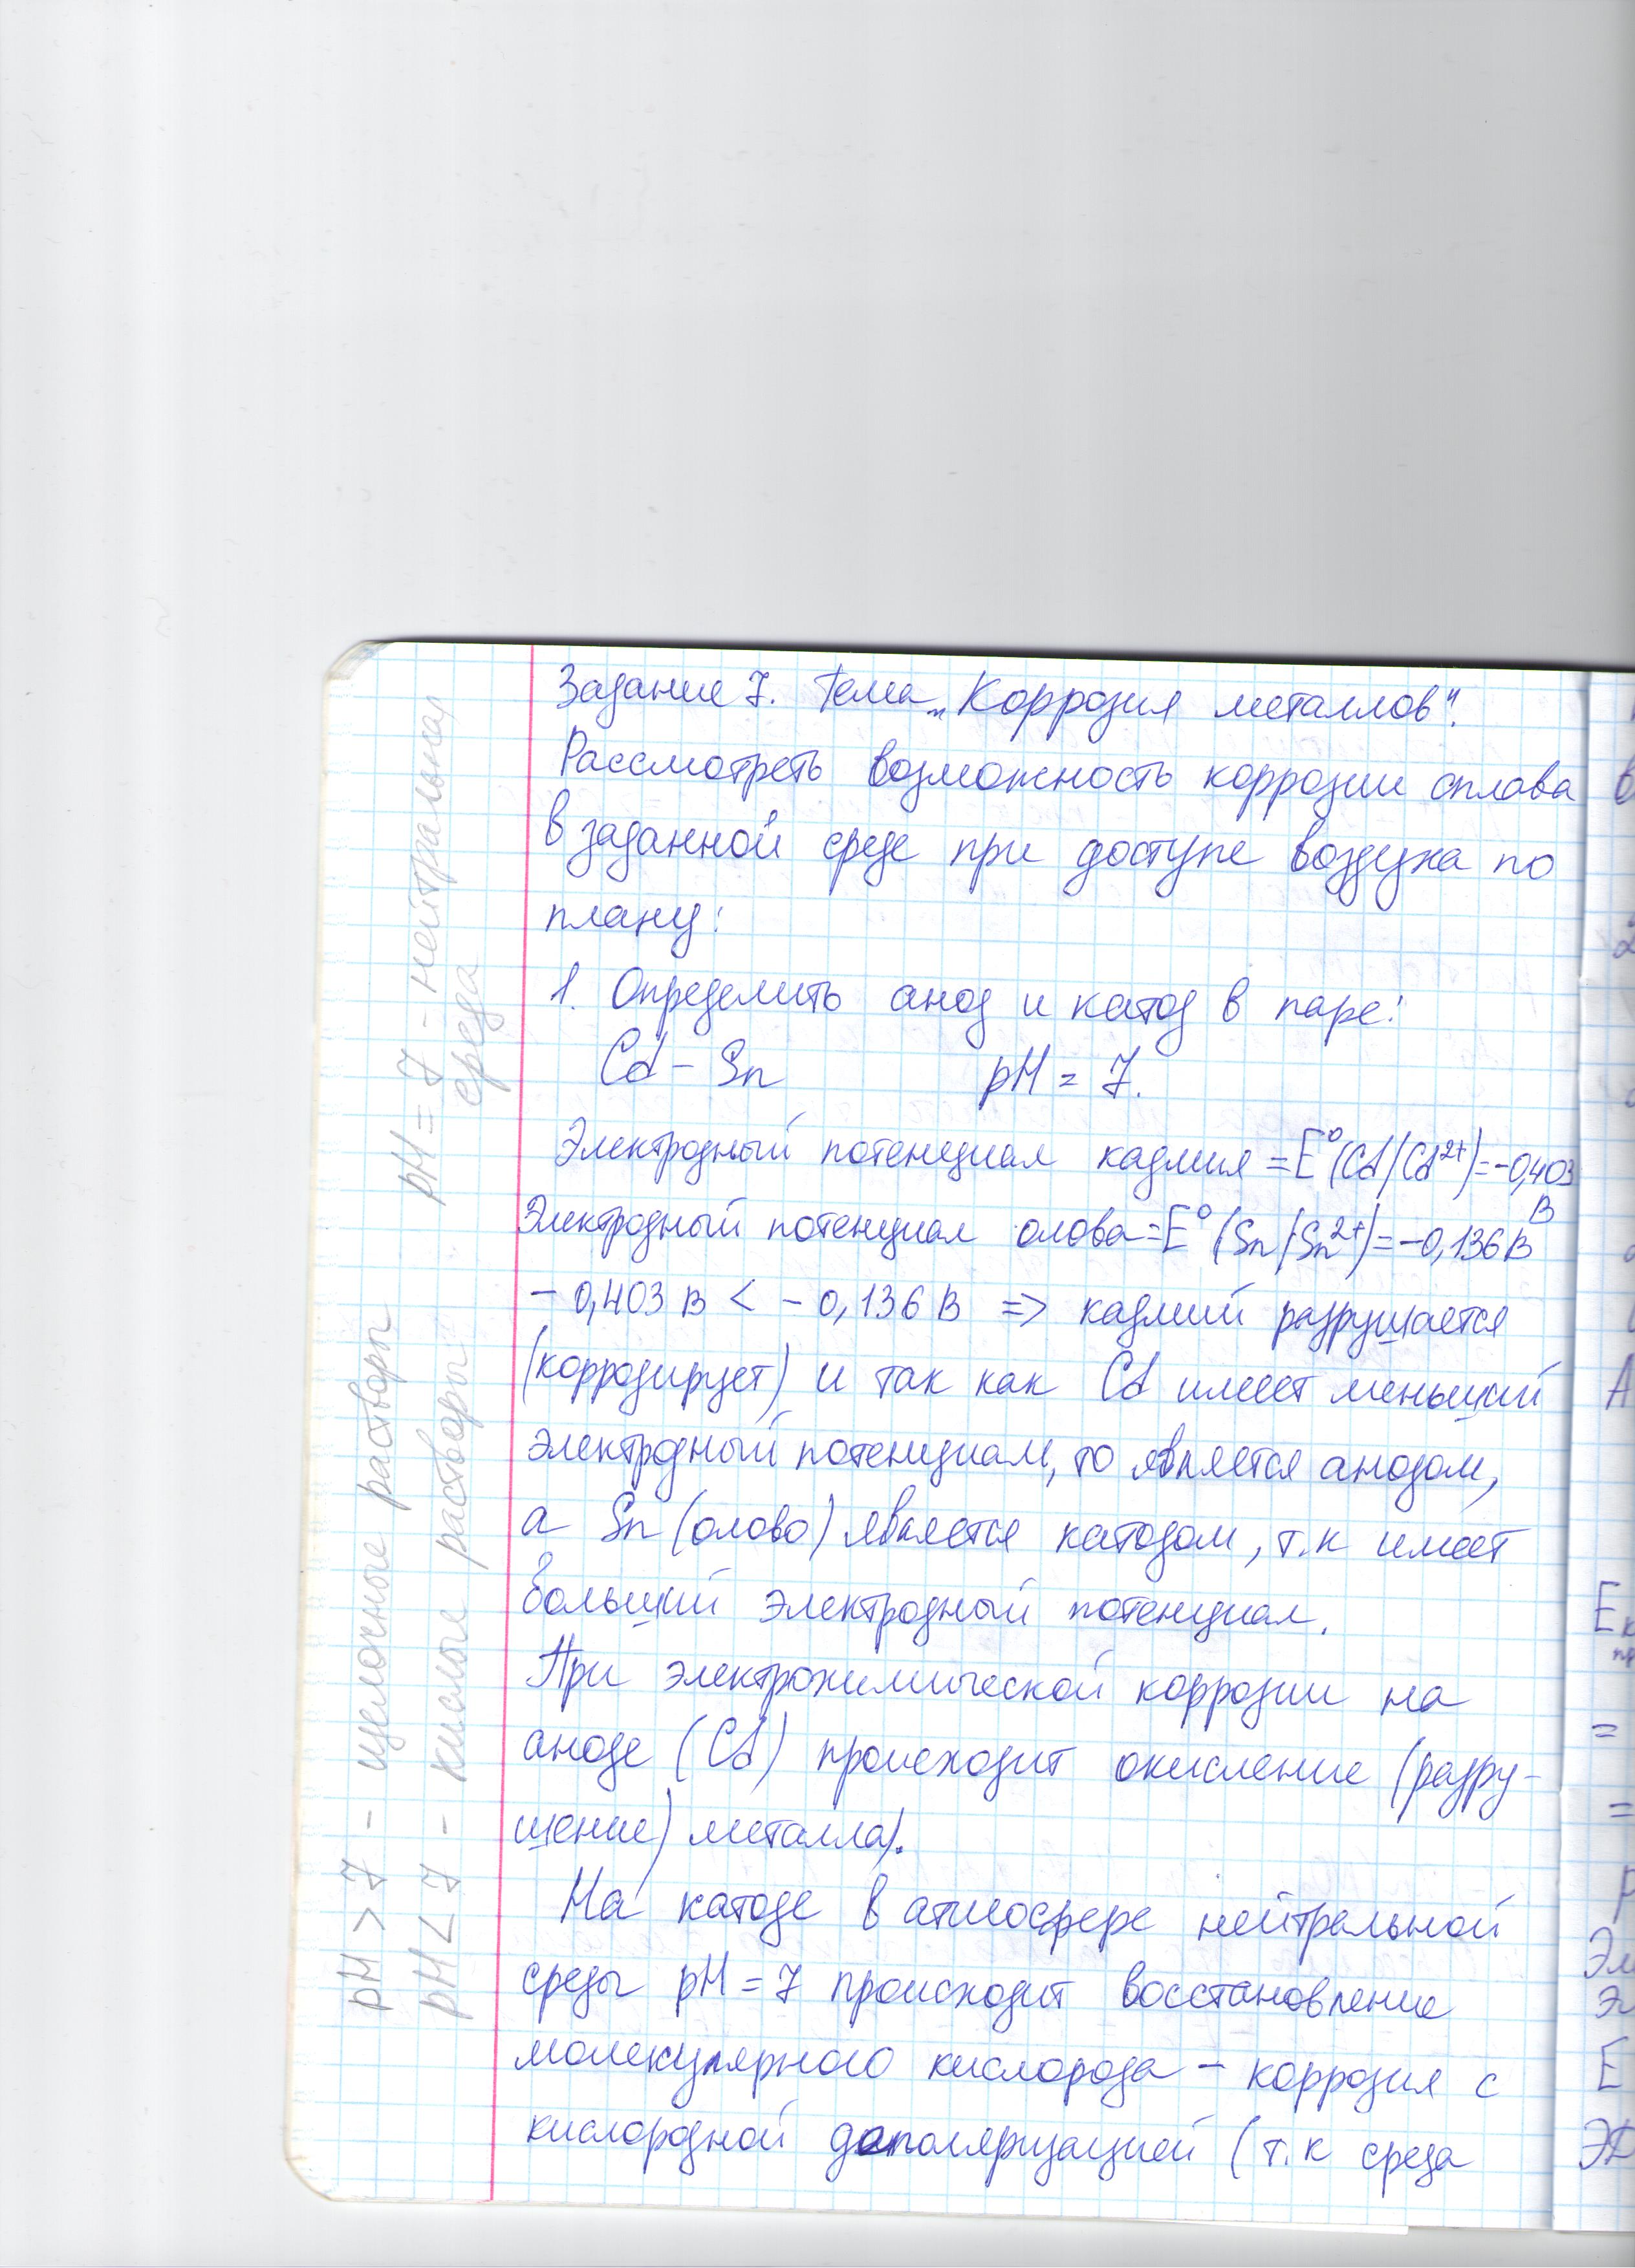 Задание 7. Тема „Коррозия металлов".
Рассмотреть возможность коррозии сплава
в заданной среде при доступе воздуха по
плану:
1. Определить анод и катод в паре:
Cd – Sn pH = 7.
Электродный потенциал кадмия = E⁰(Cd/Cd²⁺)=-0,403
В
Электродный потенциал олова=E⁰(Sn/Sn²⁺)=-0,136В
- 0,403 В < - 0,136 В => кадмий разрушается
(корродирует) и так как Cd имеет меньший
электродный потенциал, то является анодом,
а Sn (олово) является катодом, т.к имеет
больший электродный потенциал.
При электрохимической коррозии на
аноде (Cd) происходит окисление (разру-
шение) металла).
На катоде в атмосфере нейтральной
среды pH = 7 происходит восстановление
молекулярного кислорода – коррозия с
кислородной деполяризацией (т.к среда
pH = 7 - нейтральная
среда
pH > 7 - щелочные растворы
pH < 7 - кислые растворы